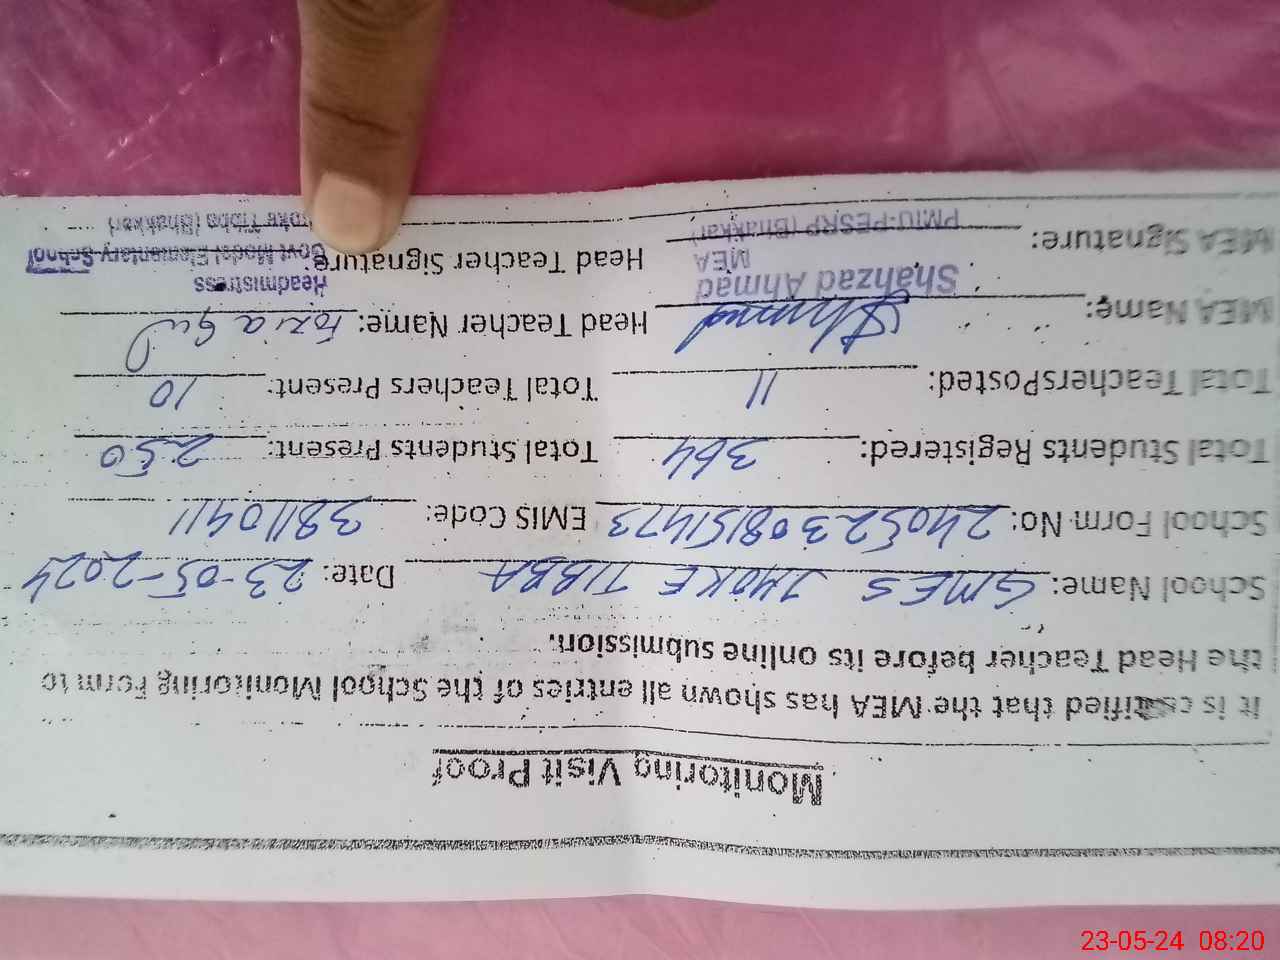 Monitoring Visit Proof
It is certified that the MEA has shown all entries of the School Monitoring Form to
the Head Teacher before its online submission.
School Name: GMES JHOKE TIBBA Date: 23-05-2024
School Form No: 24052308151473 EMIS Code: 38110411
Total Students Registered: 364 Total Students Present: 250
Total TeachersPosted: 11 Total Teachers Present: 10
MEA Name: Head Teacher Name: Fozia Gul
Shahzad Ahmad
MEA
PMIU-PESRP (Bhakkar)
MEA Signature: Head Teacher Signature:
Headmistress
Govt Model Elementary School
Tibba (Bhakkar)
23-05-24 08:20